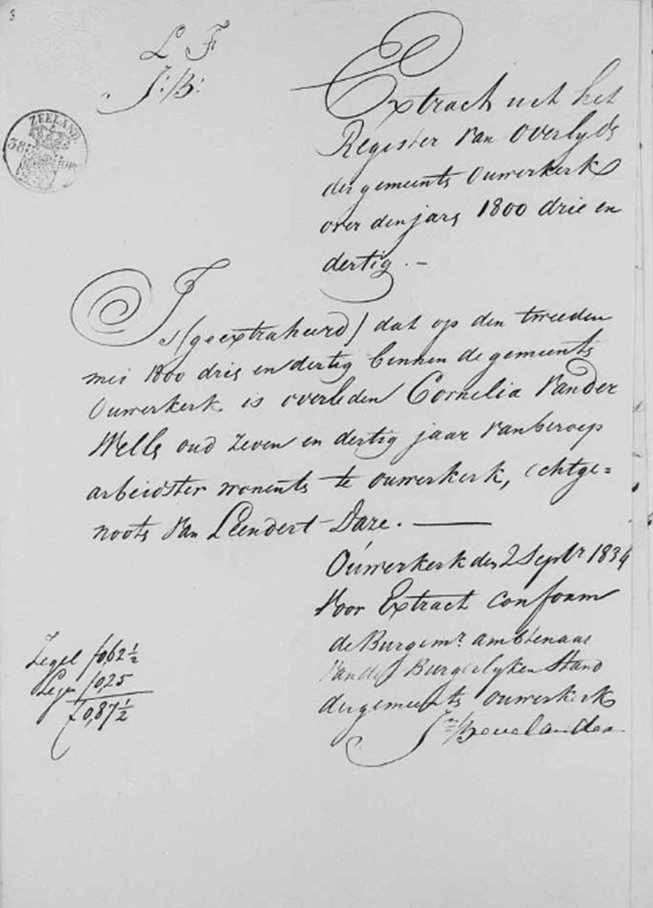 3
L F
J:B:
ZEELAND
38
Extract uit het
Register van Overlyds
der gemeente Ouwerkerk
over den jare 1800 drie en
dertig. -
Is (geextraheerd) dat op den tweeden
mei 1800 drie en dertig binnen de gemeente
Ouwerkerk is overleden Cornelia Van der
Wells oud zeven en dertig jaar van beroep
arbeidster wonente te ouwerkerk, echtge=
noote van Leendert Dare. —
Ouwerkerk den 2 Septr 1834
Voor Extract conform
de Burgemr ambtenaar
van de Burgelyken Stand
der gemeente ouwerkerk
Bevelander
Zegel f 0,62 1/2
Lege f 0,25
f 0,87 1/2